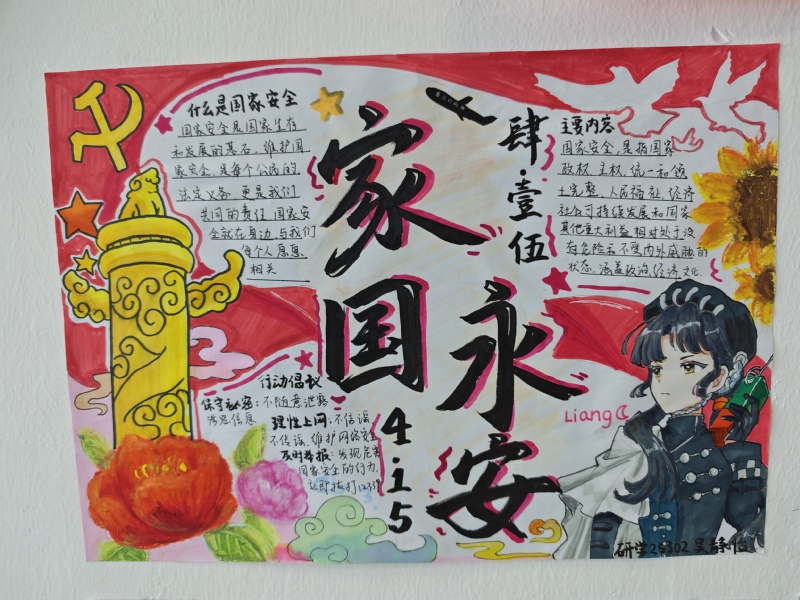 什么是国家安全
国家安全是国家生存
和发展的基石,维护国
家安全,是每个公民的
法定义务,更是我们
共同的责任,国家安
全就在身边,与我们
每个人息息
相关
家国
永安
肆·壹伍
4.15
主要内容
国家安全,是指国家
政权、主权、统一和领
土完整、人民福祉、经济
社会可持续发展和国家
其他重大利益相对处于没
有危险和不受内外威胁的
状态,涵盖政治,经济,文化.
行动倡议
保守秘密:不随意泄露
涉密信息
理性上网:不信谣
不传谣,维护网络安全
及时举报:发现危害
国家安全的行为,
立即拨打12339
Liang
研学25302 吴静怡